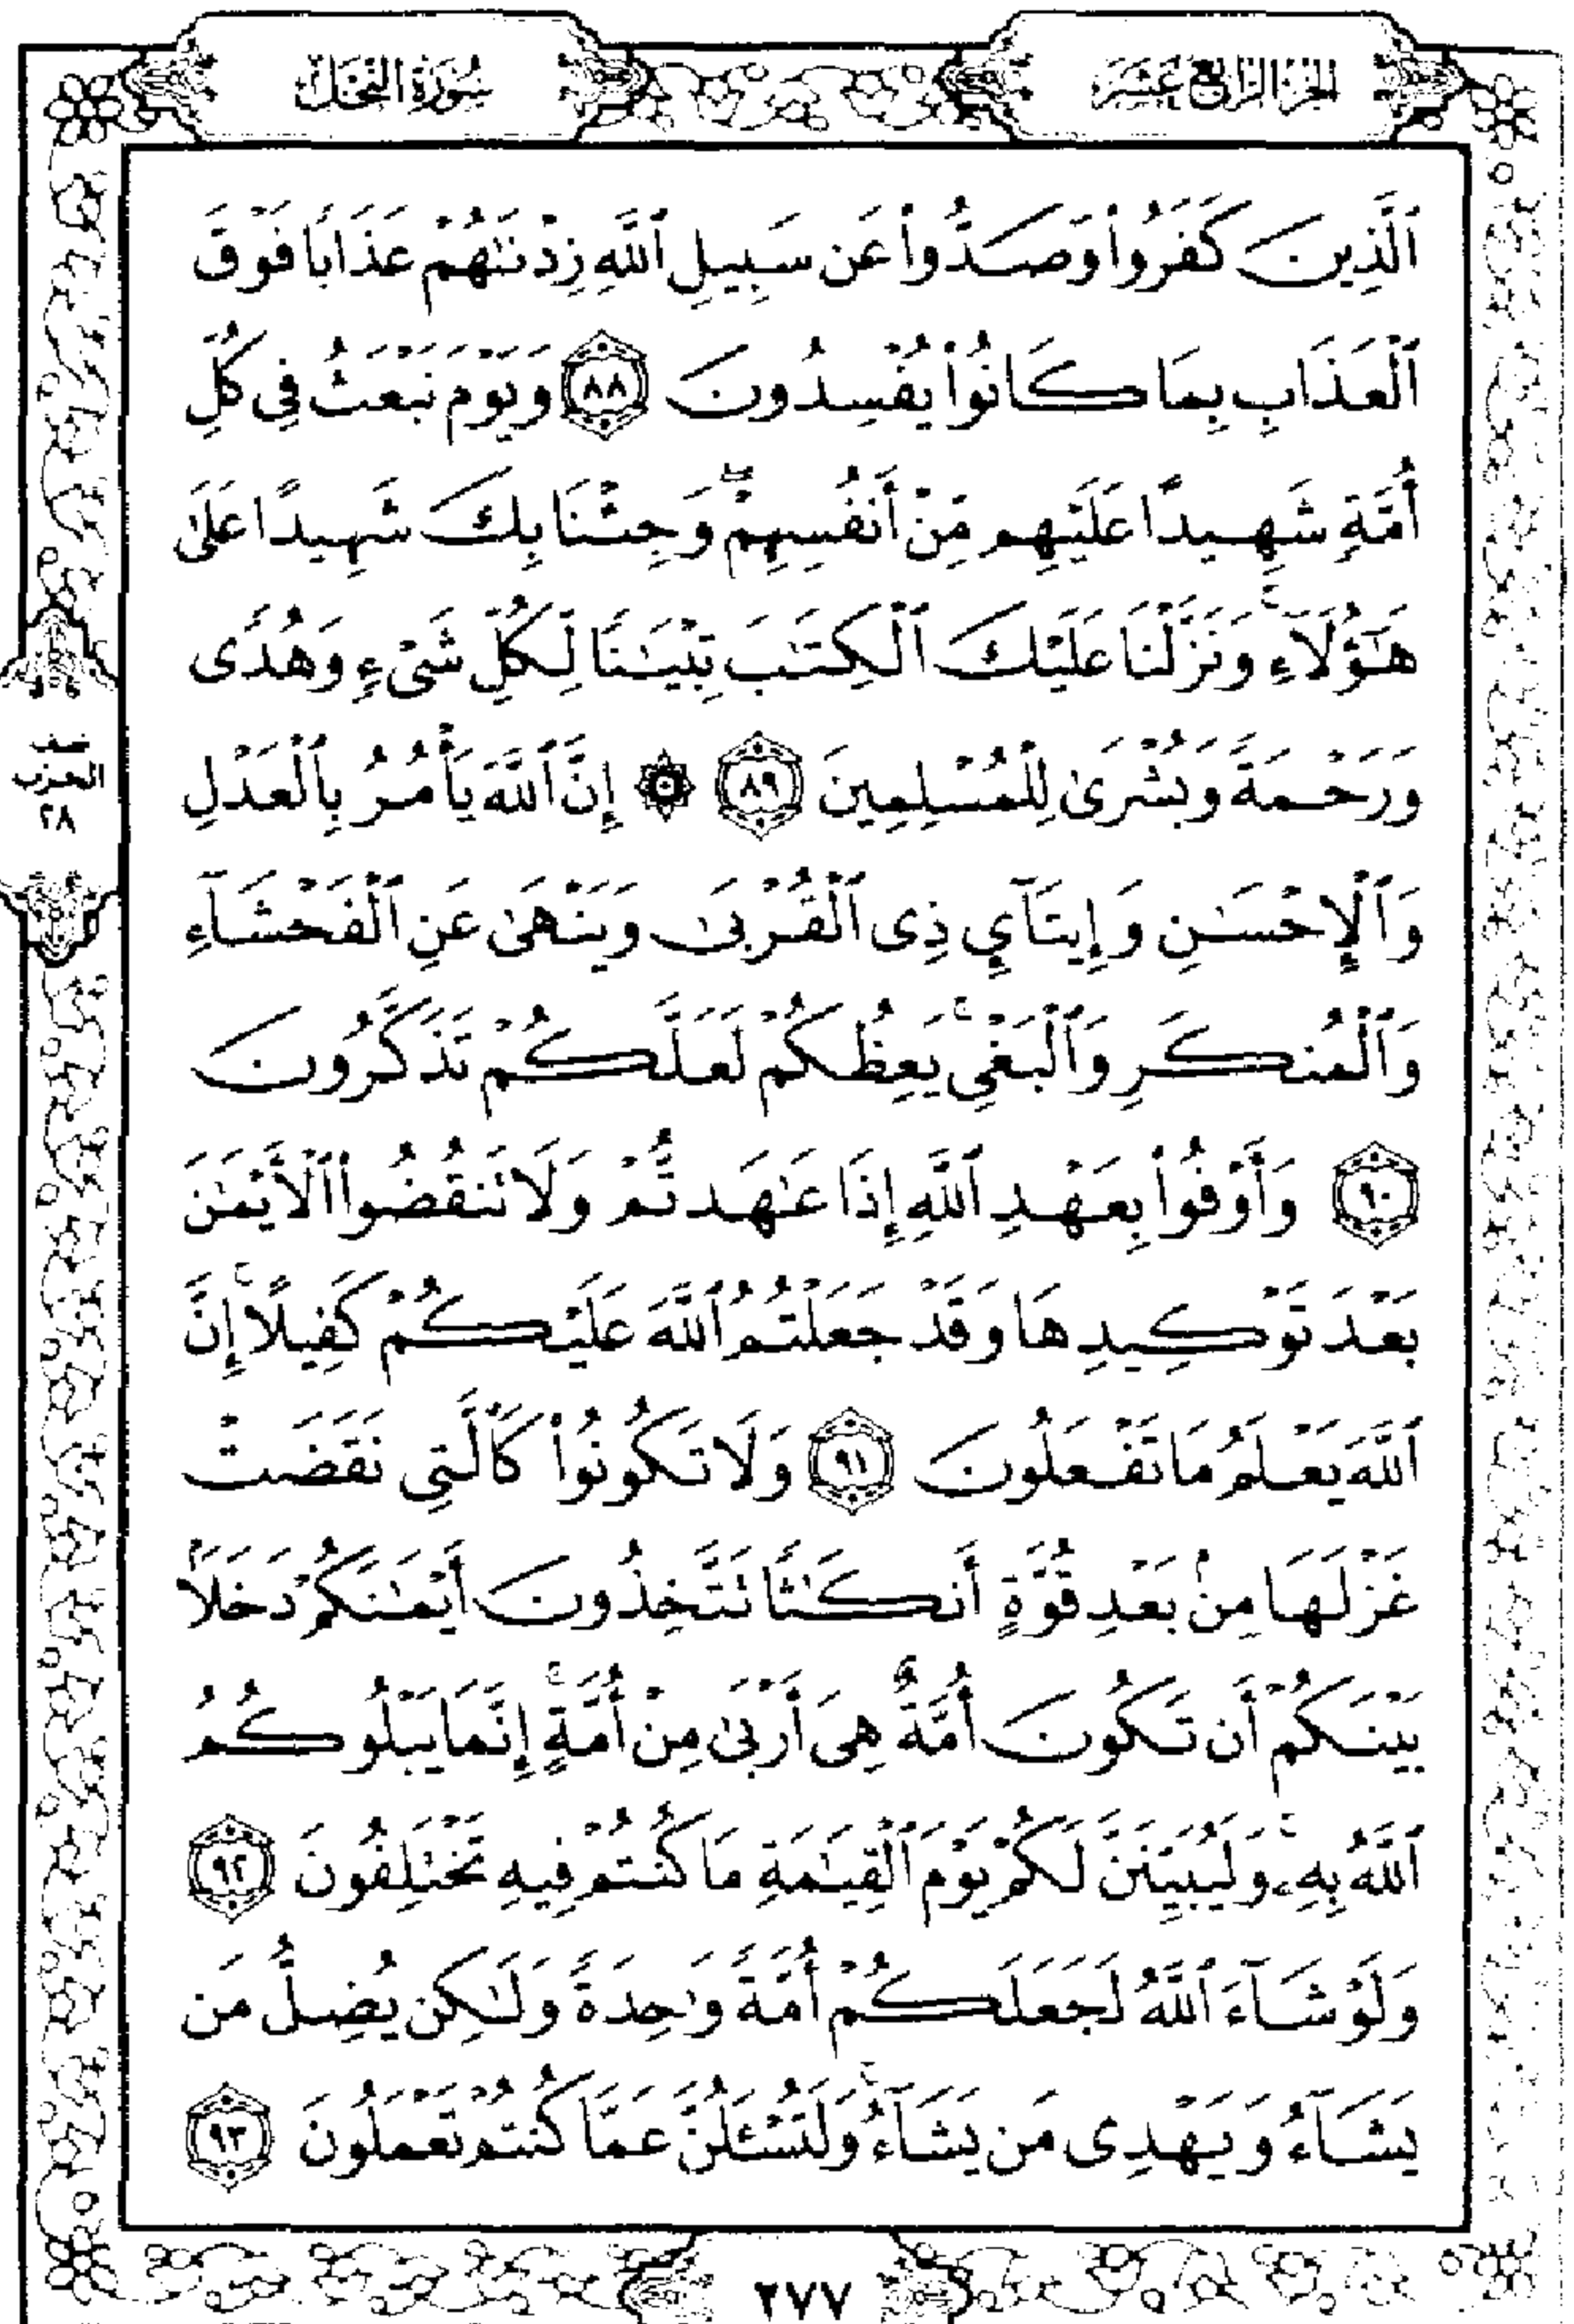 الجزء الرابع عشر
سورة النحل
ٱلَّذِينَ كَفَرُوا۟ وَصَدُّوا۟ عَن سَبِيلِ ٱللَّهِ زِدْنَٰهُمْ عَذَابًا فَوْقَ
ٱلْعَذَابِ بِمَا كَانُوا۟ يُفْسِدُونَ ٨٨ وَيَوْمَ نَبْعَثُ فِى كُلِّ
أُمَّةٍ شَهِيدًا عَلَيْهِم مِّنْ أَنفُسِهِمْ ۖ وَجِئْنَا بِكَ شَهِيدًا عَلَىٰ
هَٰٓؤُلَآءِ ۚ وَنَزَّلْنَا عَلَيْكَ ٱلْكِتَٰبَ تِبْيَٰنًا لِّكُلِّ شَىْءٍ وَهُدًى
وَرَحْمَةً وَبُشْرَىٰ لِلْمُسْلِمِينَ ٨٩ ۞ إِنَّ ٱللَّهَ يَأْمُرُ بِٱلْعَدْلِ
وَٱلْإِحْسَٰنِ وَإِيتَآئِ ذِى ٱلْقُرْبَىٰ وَيَنْهَىٰ عَنِ ٱلْفَحْشَآءِ
وَٱلْمُنكَرِ وَٱلْبَغْىِ ۚ يَعِظُكُمْ لَعَلَّكُمْ تَذَكَّرُونَ
٩٠ وَأَوْفُوا۟ بِعَهْدِ ٱللَّهِ إِذَا عَٰهَدتُّمْ وَلَا تَنقُضُوا۟ ٱلْأَيْمَٰنَ
بَعْدَ تَوْكِيدِهَا وَقَدْ جَعَلْتُمُ ٱللَّهَ عَلَيْكُمْ كَفِيلًا ۚ إِنَّ
ٱللَّهَ يَعْلَمُ مَا تَفْعَلُونَ ٩١ وَلَا تَكُونُوا۟ كَٱلَّتِى نَقَضَتْ
غَزْلَهَا مِنۢ بَعْدِ قُوَّةٍ أَنكَٰثًا تَتَّخِذُونَ أَيْمَٰنَكُمْ دَخَلًۢا
بَيْنَكُمْ أَن تَكُونَ أُمَّةٌ هِىَ أَرْبَىٰ مِنْ أُمَّةٍ ۚ إِنَّمَا يَبْلُوكُمُ
ٱللَّهُ بِهِۦ ۚ وَلَيُبَيِّنَنَّ لَكُمْ يَوْمَ ٱلْقِيَٰمَةِ مَا كُنتُمْ فِيهِ تَخْتَلِفُونَ ٩٢
وَلَوْ شَآءَ ٱللَّهُ لَجَعَلَكُمْ أُمَّةً وَٰحِدَةً وَلَٰكِن يُضِلُّ مَن
يَشَآءُ وَيَهْدِى مَن يَشَآءُ ۚ وَلَتُسْـَٔلُنَّ عَمَّا كُنتُمْ تَعْمَلُونَ ٩٣
نصف
الحزب
٢٨
٢٧٧